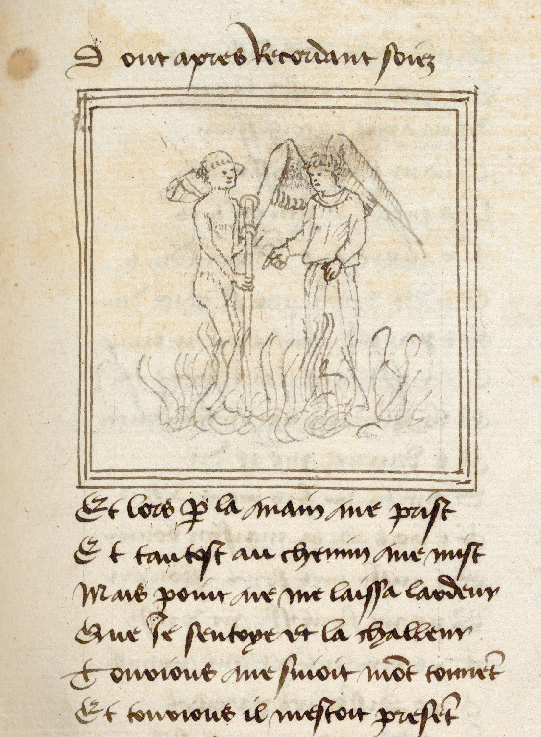 Dont apres Recordant soiez
Et lors p la main me prist
Et tantost au chemin me mist
Mais point ne me laissa lardeur
Que Je sentoye et la challeur
Tousiours me suioit mōt tormēt
Et tousiours il mestoit presēt